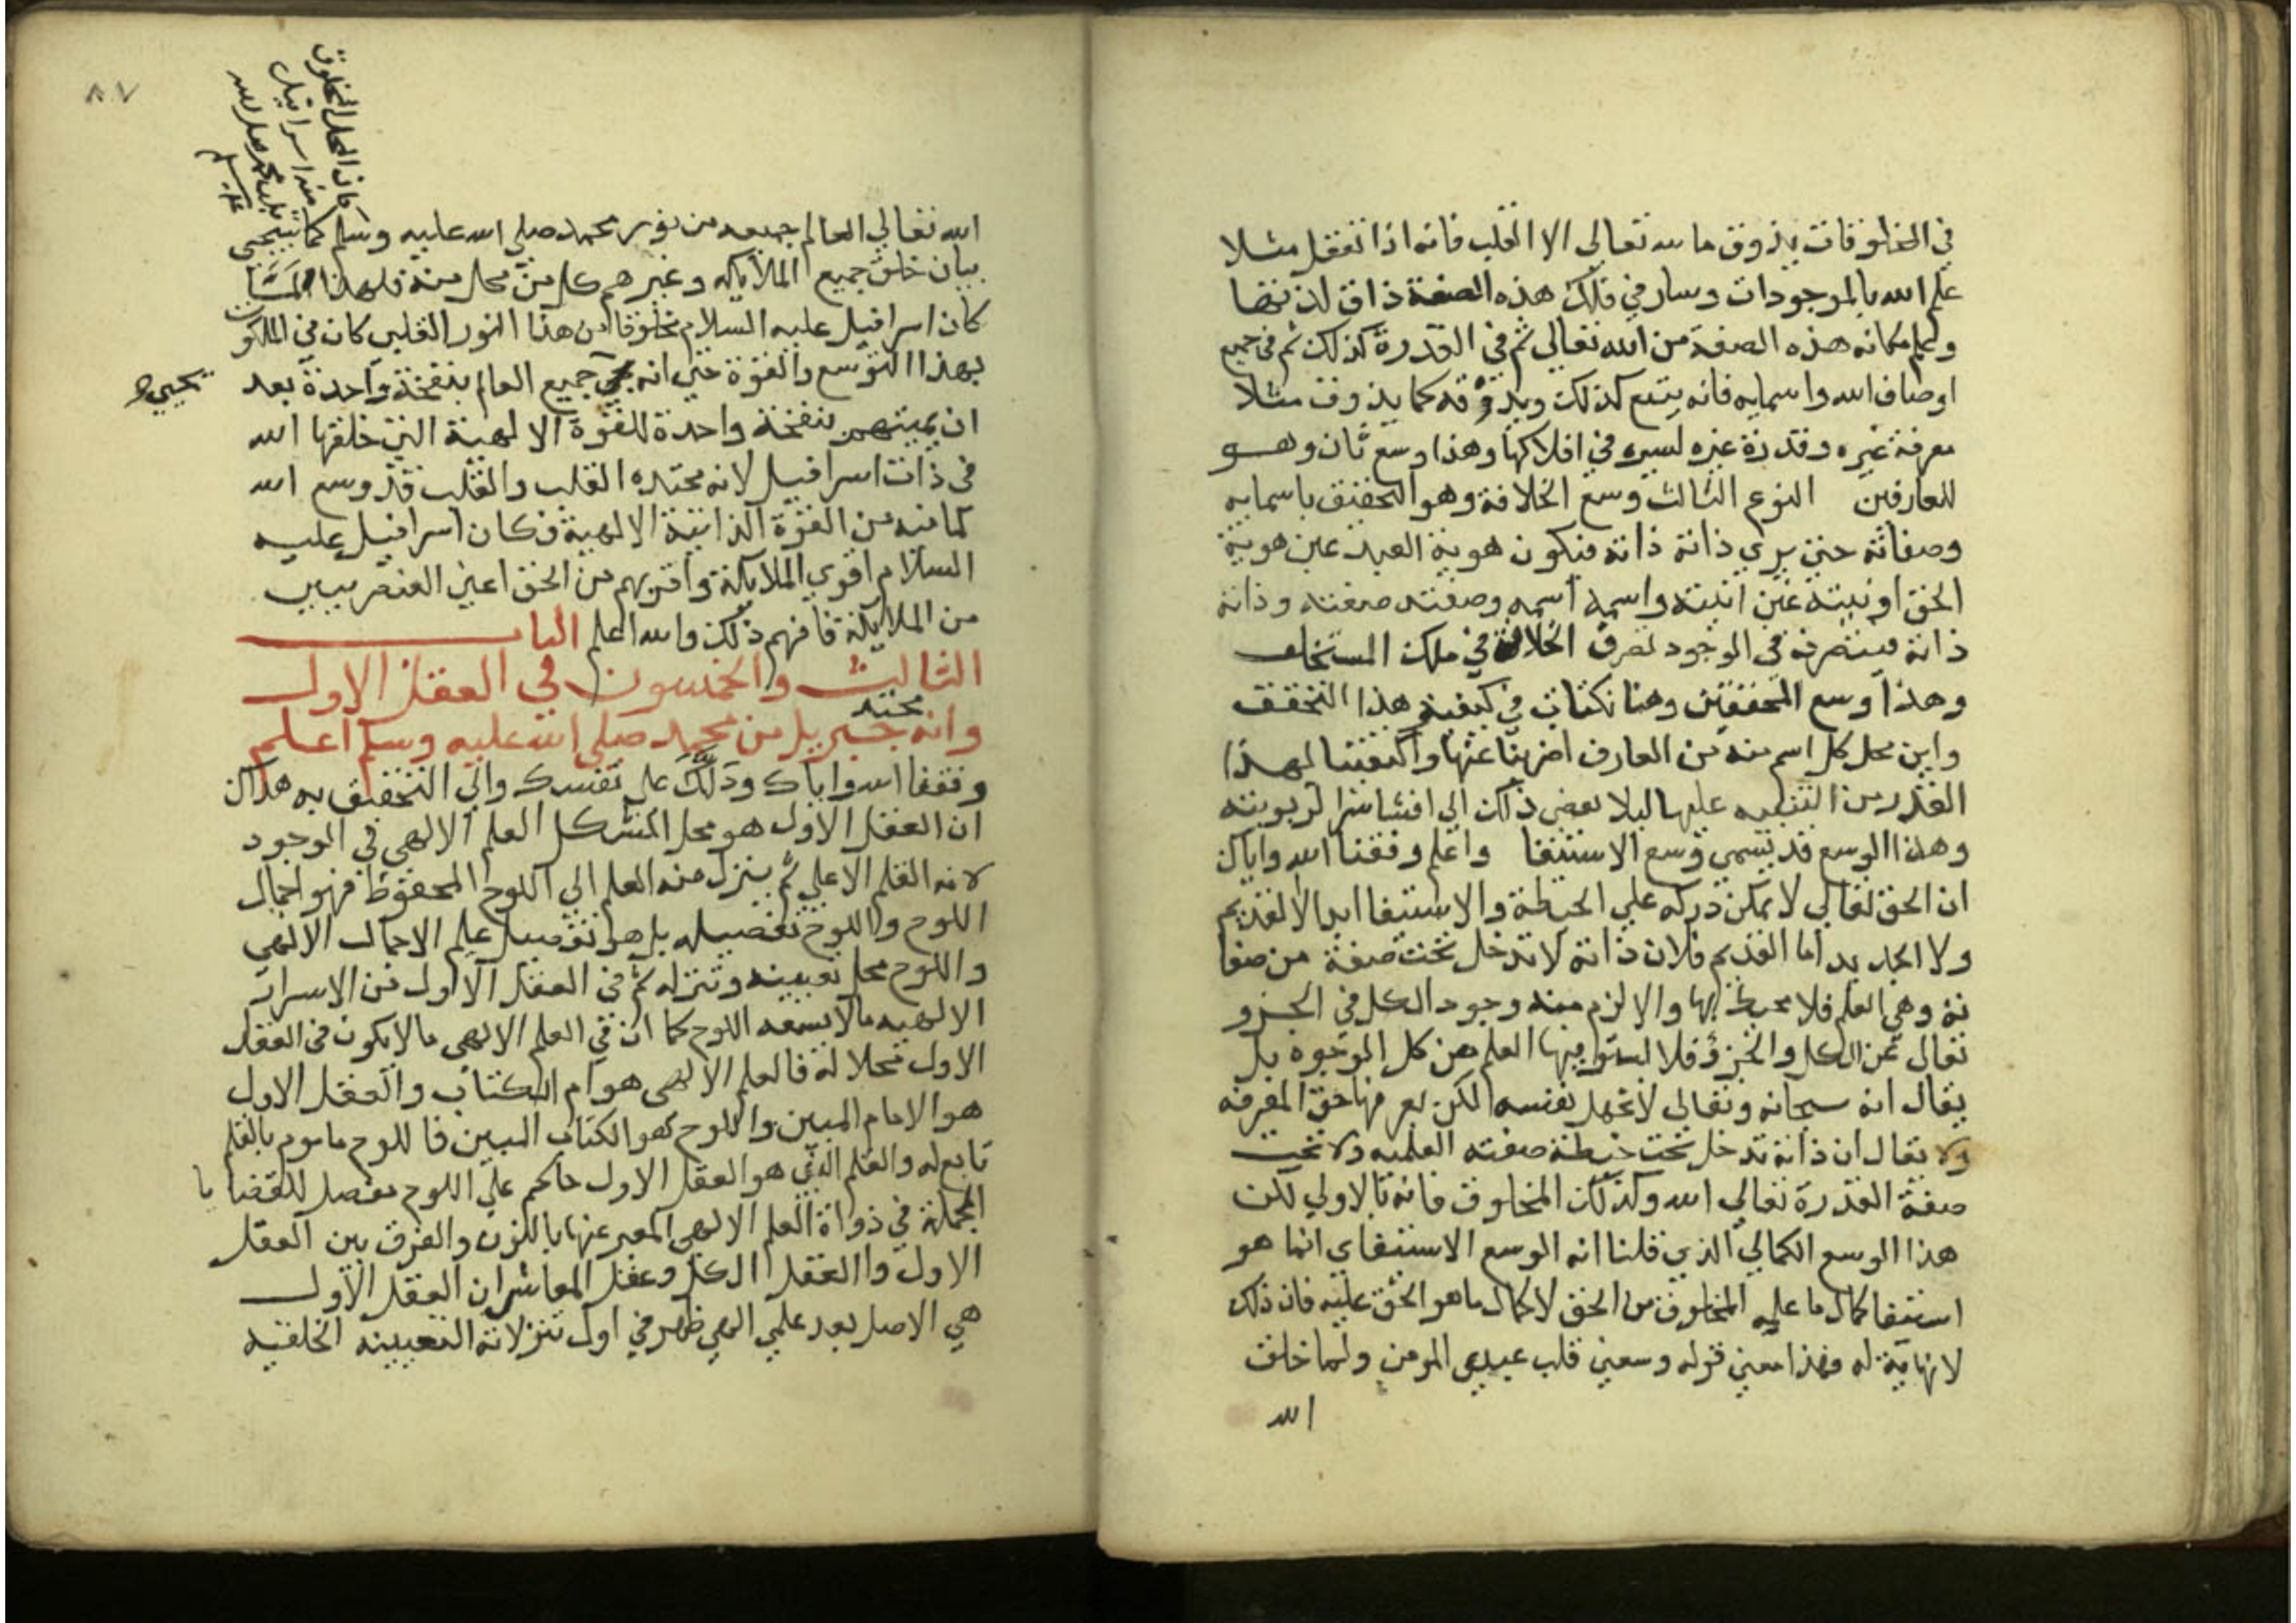 في المخلوقات يذوق ما لله تعالى الا القلب فانه اذا تعقل مثلا
علم الله بالموجودات وسار في فلك هذه الصفة ذاق لذتها
وعلم مكانه هذه الصفة من الله تعالي ثم في القدرة كذلك ثم في جميع
اوصاف الله واسمايه فانه يتسع لذلك ويذوقه كما يذوق مثلا
معرفة غيره وقدرة غيره لسيره في افلاكها وهذا وسع ثان وهو
للعارفين النوع الثالث وسع الخلافة وهو التحقيق باسمايه
وصفاته حتي يري ذاته ذاته فتكون هوية العبد عين هوية
الحق اونيته عين انيته واسمه اسمه وصفته صفته وذاته
ذاته فيتصرف في الوجود تصرف الخلافة في ملك المستخلف
وهذا وسع المحققين وهنا نكتات في كيفية هذا التحقق
واين محل كل اسم منه من العارف اضربنا عنها واكتفينا لهذا
القدر من التنبيه عليها ليلا يفضي ذلك الي افشا سر الربوبيته
وهذا الوسع قد يسمي وسع الاستيفا واعلم وفقنا الله واياك
ان الحق تعالي لا يمكن دركه علي الحيطة والاستيفا ابدا لا لقديم
ولا لجديد اما القديم فلان ذاته لا تدخل تحت صفة من صفا
ته وهي العلم فلا يحيط بها والا لزم منه وجود الكل في الجزو
تعالي عن الكل والجزؤ فلا يستوفيها العلم من كل الوجوه بل
يقال انه سبحانه وتعالي لا يجهل نفسه لكن يعرفها حق المعرفه
ولا يقال ان ذاته تدخل تحت حيطة صفته العلميه ولا تحت
صفة القدرة تعالي الله وكذلك المخلوق فانه بالاولي لكن
هذا الوسع الكمالي الذي قلنا انه الوسع الاستيفاي انما هو
استيفا كمال ما علي المخلوق من الحق لا كمال ما هو الحق عليه فان ذلك
لا نهاية له فهذا معني قوله وسعني قلب عبدي المومن ولما خلق
الله
٨٧
فان المحل المخلوق
منه اسرافيل
من محمد صلي الله
عليه وسلم
الله تعالي العالم جميعه من نور محمد صلي الله عليه وسلم كما سيجي
بيان خلق جميع الملايكه وغيرهم كل من محل منه فلهذا لما
كان اسرافيل عليه السلام مخلوقا من هذا النور القلبي كان في الملكوت
بهذا التوسع والقوة حتي انه يحيي جميع العالم بنفخة واحدة بعد
يحيي
ان يميتهم بنفخة واحدة للقوة الالهية التي خلقها الله
في ذات اسرافيل لانه محتده القلب والقلب قد وسع الله
لما فيه من القوة الذاتية الالهية فكان اسرافيل عليه
السلام اقوي الملايكة واقربهم من الحق اعني العنصريين
من الملايكة فافهم ذلك والله اعلم الباب
الثالث والخمسون في العقل الاول
وانه محتد جبريل من محمد صلي الله عليه وسلم اعلم
وفقنا الله واياك ودلك علي نفسك والي التحقيق به هداك
ان العقل الاول هو محل المتشكل العلم الالهي في الوجود
لانه القلم الاعلي ثم ينزل منه العلم الي اللوح المحفوظ فهو اجمال
اللوح واللوح تفصيله بل هو تفصيل علم الاجمال الالهي
واللوح محل تعيينه وتنزله ثم في العقل الاول من الاسرار
الالهيه ما لا يسعه اللوح كما ان في العلم الالهي ما لا يكون في العقل
الاول محلا له فالعلم الالهي هو ام الكتاب والعقل الاول
هو الامام المبين واللوح هو الكتاب المبين فاللوح ماموم بالقلم
تابع له والقلم الذي هو العقل الاول حاكم علي اللوح مفصل للقضايا
المجملة في ذواة العلم الالهي المعبر عنها بالنون والفرق بين العقل
الاول والعقل الكل وعقل المعاش ان العقل الاول
هي الاصل بعد علمي الهي ظهر في اول تنزلاته التعيينه الخلقيه